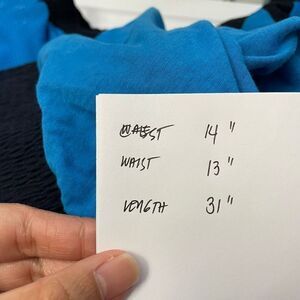 14 "
WAIST 13 "
LENGTH 31 "